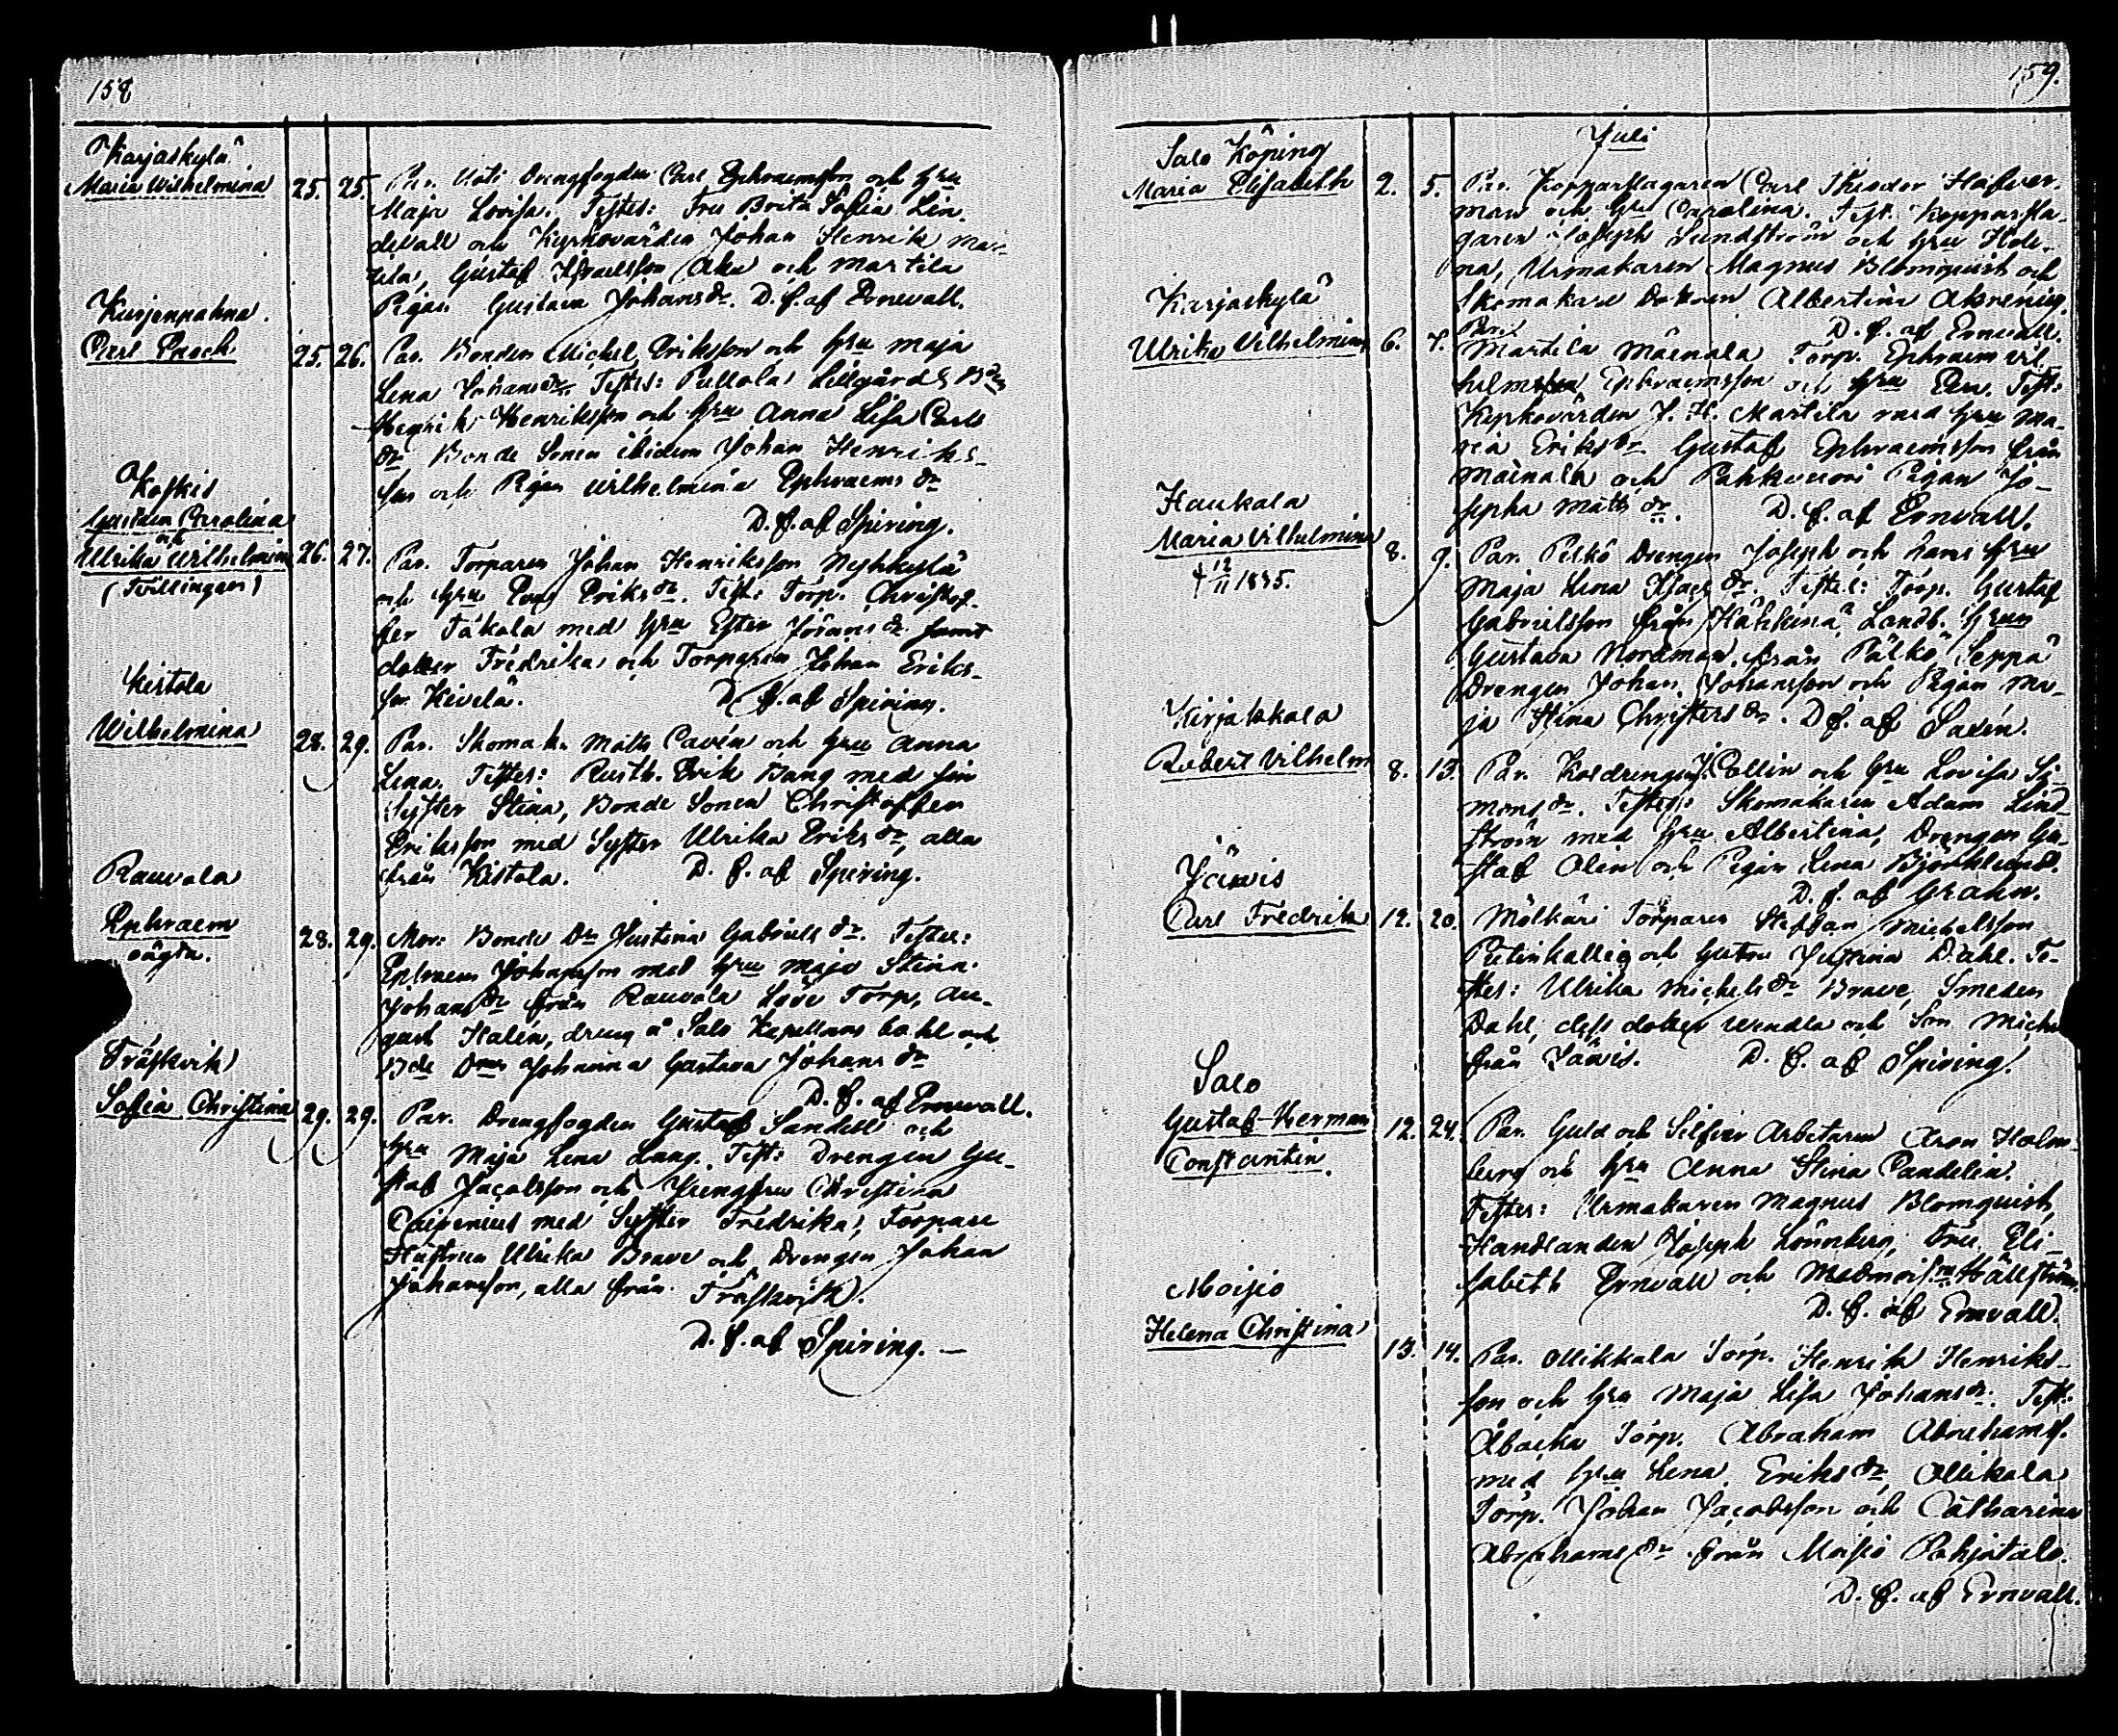 158
Karjaskylä
Maria Wilhelmina 25. 25. Par. Uoti Drengfogden Carl Ephraimsson och hru
Maja Lovisa. Testes: Fru Brita Sofia Lin-
devall och Kyrkovärden Johan Henrik Mar-
tila, Gustaf Israelsson Aku och Martila
Pigan Gustava Johansdr. D. f. af Ernvall.
Kurjenpahna.
Carl Enoch 25. 26. Par. Bonden Michel Eriksson och hru Maja
Lena Johansdr. Testes: Pullola Lillgårds Bdn
Henrik Henriksson och hru Anna Lisa Carls
dr Bonde Sonen ibidem Johan Henriks-
son och Pigan Wilhelmina Ephraemsdr
D. f. af Spiring.
Koskis
Gustava Carolina
och
Ulrika Wilhelmina 26. 27. Par. Torparen Johan Henriksson Nyhkylä
(Tvillingar)
och hru Eva Eriksdr. Test: Torp. Christof-
fer Takala med hru Ester Jöransdr samt
dotter Fredrika och Torparen Johan Eriks-
son Kivelä. D. f. af Spiring.
Kistola
Wilhelmina 28. 29. Par. Skomak. Matts Cavén och hru Anna
Lena. Testes: Rusth. Erik Bang med sin
Syster Stina, Bonde Sonen Christoffer
Eriksson med Syster Ulrika Eriksdr, alla
från Kistola. D. f. af Spiring.
Rauvola
Ephraem 28. 29. Mor: Bonde Dr Justina Gabrielsdr. Testes:
oägta.
Ephraem Johansson med hru Maja Stina
Johansdr från Rauvola Löve Torp, Au-
gust Halén, dreng å Salo Kapellans bohl och
Bde Dmr Johanna Gustava Johansdr
D. f. af Ernvall.
Träskvik
Sofia Christina 29. 29. Par. Drengfogden Gustaf Sandell och
hru Maja Lena Lang. Test: Drengen Gu-
staf Jacobsson och Jungfru Christina
Caipenius med Syster Fredrika, Torpare
Hustrun Ulrika Brave och Drengen Johan
Johansson, alla från Träskvik.
D. f. af Spiring. —
159.
Juli
Salo Köping
Maria Elisabeth 2. 5. Par. Kopparslagaren Carl Theodor Hafver-
man och hru Carolina. Test. Kopparsla-
garen Joseph Sundström och hru Hele-
na, Urmakaren Magnus Blomquist och
Skomakare Dottren Albertina Abrening.
D. f. af Ernvall.
Karjaskylä
Ulrika Vilhelmina 6. 7. Par. Martila Mäenala Torp. Ephraem Vil-
helmsson Ephraemsson och hru Eva. Test:
Kyrkovärden J. H. Martila med hru Ma-
ria Eriksdr Gustaf Ephraemsson från
Mäinala och Pahkvuori Pigan Jo-
sepha Mattsdr. D. f. af Ernvall.
Haukala
Maria Vilhelmina 8. 9. Par. Pelkö Drengen Joseph och hans hru
† 12/11 1835.
Maja Lena Isacsdr. Testes: Torp. Gustaf
Gabrielsson från Hähkinä Landb. hrun
Gustava Nordman, från Pälkö Seppä
Drengen Johan Johansson och Pigan Ma-
ja Stina Christersdr. D. f. af Saxén.
Kirjakkala
Robert Vilhelm 8. 13. Par. Koldrengen J. Collin och hru Lovisa Si-
monsdr. Testes: Skomakaren Adam Lind-
ström med hru Albertina, Drengen Gu-
staf Olin och Pigan Lena Björklund.
D. f. af Grahn.
Jäuvis
Carl Fredrik 12. 20. Mölkäri Torparen Steffan Michelsson
och hustru Justina Dahl. Te-
stes: Ulrika Michelsdr Brave, Smeden
Dahl, dess dotter Wendla och Son Michel
från Jäuvis. D. f. af Spiring.
Salo
Gustaf Herman 12. 24. Par. Guld och Silfver Arbetaren Aron Holm-
Constantin.
berg och hru Anna Stina Candelin.
Testes: Urmakaren Magnus Blomquist,
Handlanden Joseph Lönnberg, Fru Eli-
sabeth Ernvall och Hällström.
D. f. af Ernvall.
Moisio
Helena Christina 13. 14. Par. Ollikkala Torp. Henrik Henriks-
son och hru Maja Lisa Johansdr. Test:
Åbacka Torp. Abraham Abrahams.
med hru Lena Eriksdr Ollikala
Torp. Johan Jacobsson och Catharina
Abrahamsdr från Moisio Pohjatalo.
D. f. af Ernvall.